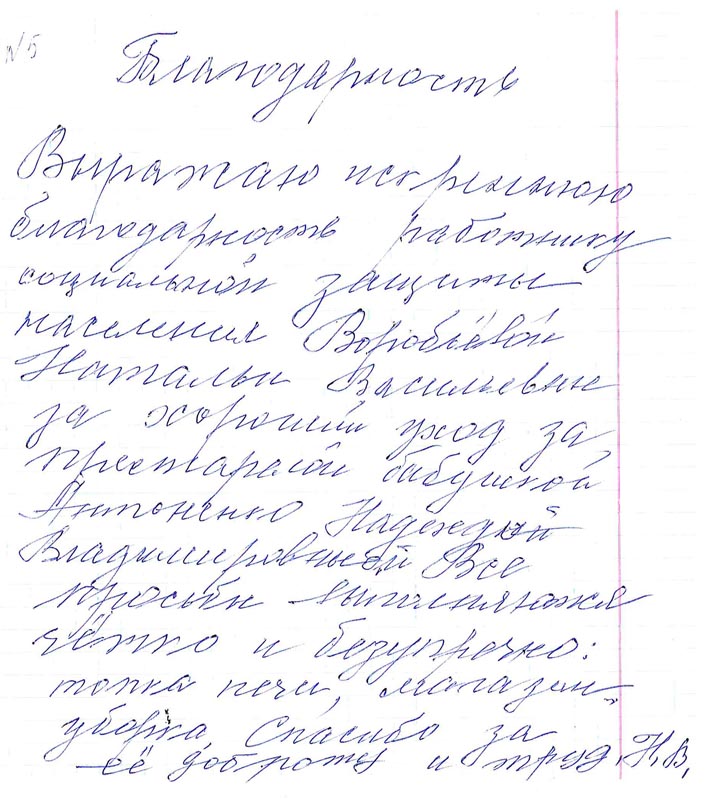 №5
Благодарность
Выражаю искреннюю
благодарность работнику
социальной защиты
населения Воробьёвой
Натальи Васильевне
за хороший уход за
престарелой бабушкой
Антоненко Надеждой
Владимировной Все
просьбы выполняются
чётко и безупречно:
топка печи, магазин,
уборка. Спасибо за
её доброту и труд. Н.В,